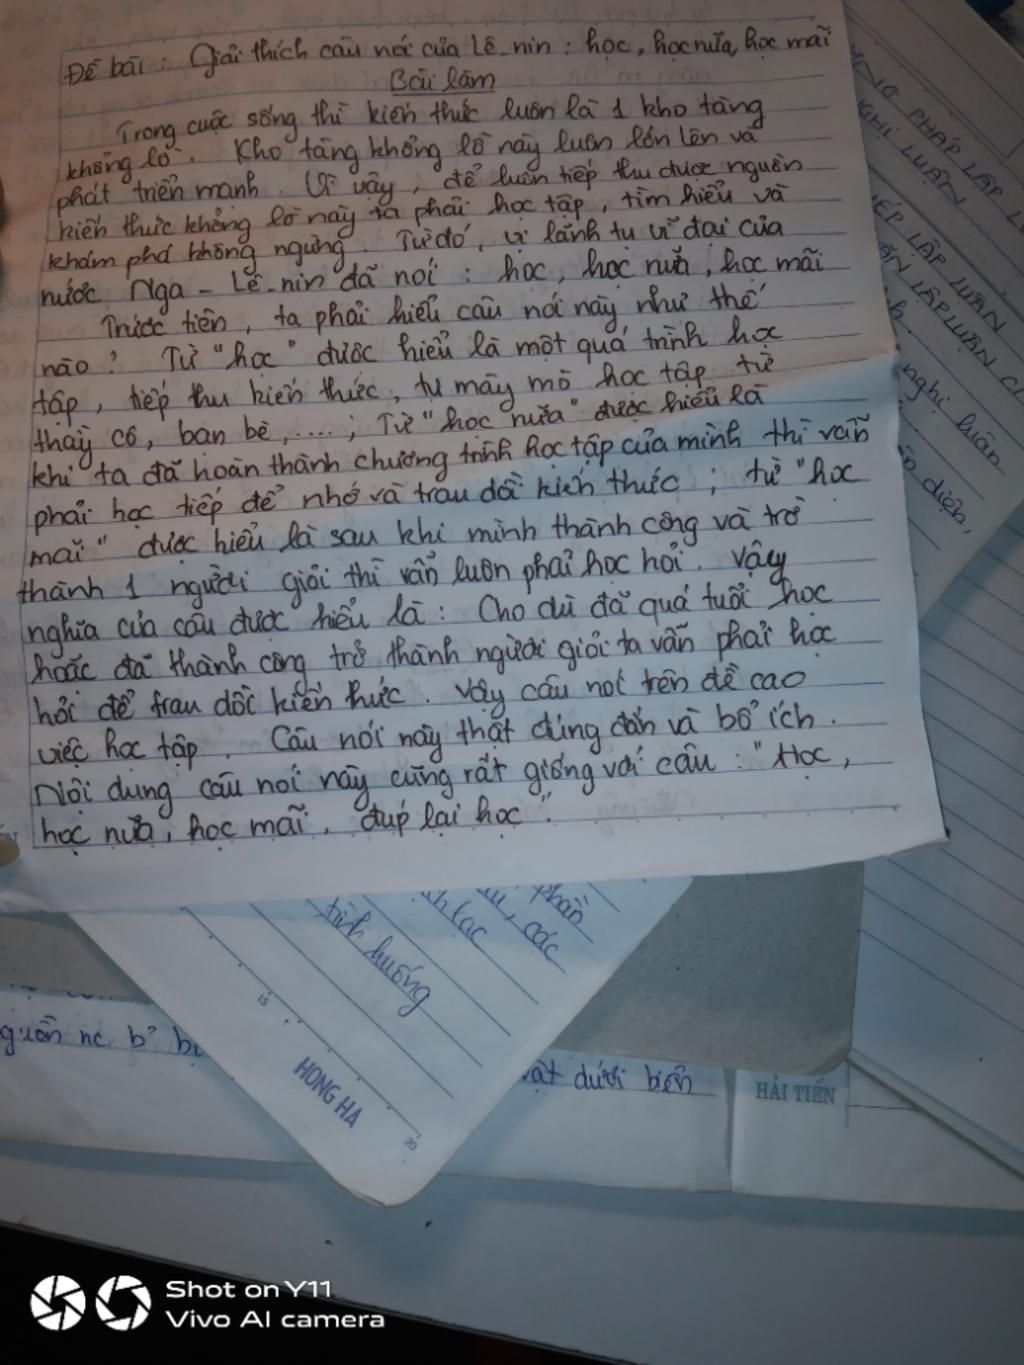 Đề bài : Giải thích câu nói của Lê-nin : học, học nữa, học mãi
Bài làm
Trong cuộc sống thì kiến thức luôn là 1 kho tàng
khổng lồ. Kho tàng khổng lồ này luôn lớn lên và
phát triển mạnh. Vì vậy, để luôn tiếp thu được nguồn
kiến thức khổng lồ này ta phải học tập, tìm hiểu và
khám phá không ngừng. Từ đó, vị lãnh tụ vĩ đại của
nước Nga - Lê-nin đã nói : học, học nữa, học mãi
Trước tiên, ta phải hiểu câu nói này như thế
nào ? Từ "học" được hiểu là một quá trình học
tập, tiếp thu kiến thức, tự mày mò học tập từ
thầy cô, bạn bè,....; Từ "học nữa" được hiểu là
khi ta đã hoàn thành chương trình học tập của mình thì vẫn
phải học tiếp để nhớ và trau dồi kiến thức ; từ "học
mãi" được hiểu là sau khi mình thành công và trở
thành 1 người giỏi thì vẫn luôn phải học hỏi. Vậy
nghĩa của câu được hiểu là: Cho dù đã quá tuổi học
hoặc đã thành công trở thành người giỏi ta vẫn phải học
hỏi để trau dồi kiến thức. Vậy câu nói trên đề cao
việc học tập. Câu nói này thật đúng đắn và bổ ích.
Nội dung câu nói này cũng rất giống với câu : "Học,
học nữa, học mãi, đúp lại học".
PHÁP LẬP
NGHỊ LUẬN
LẬP LUẬN
LẬP LUẬN
nghị luận
diện,
phần
các
tình huống
15
20
HONG HA
nc bỏ
dưới biển
HẢI TIẾN
Shot on Y11
Vivo AI camera